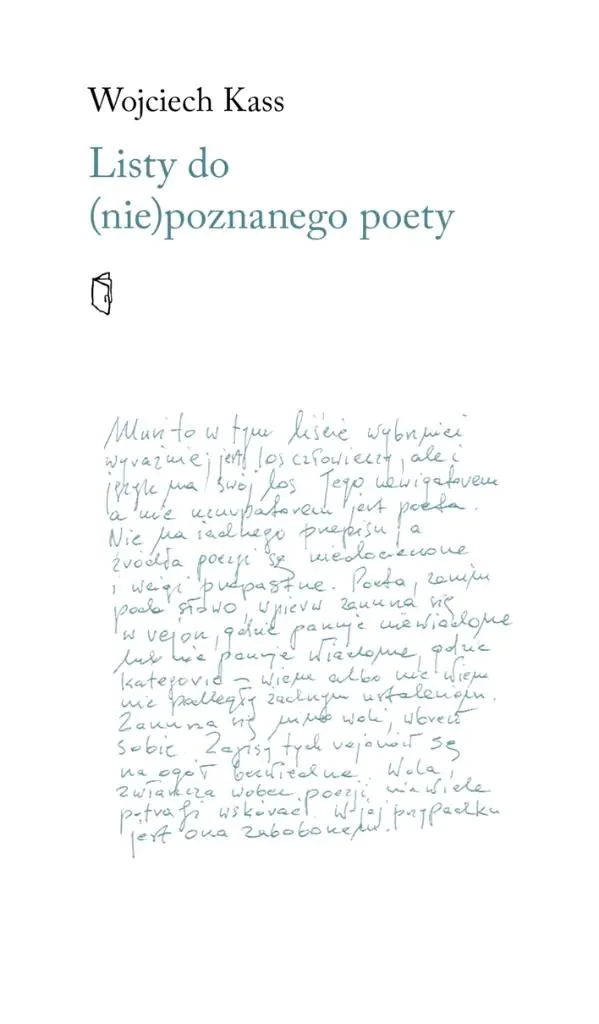 Wojciech Kass
Listy do
(nie)poznanego poety
Musi to w tym liście wybrzmieć
wyraźniej, jest los człowieczy, ale i
język ma swój los Jego nawigatorem
a nie uzurpatorem jest poeta.
Nie ma żadnego przepisu, a
źródła poezji są niedocienone
i wciąż przepastne. Poeta, zanim
poda słowo, wpierw zanurza się
w rejon, gdzie panuje niewiadome
lub nie panuje wiadome, gdzie
kategorie – wiem albo nie wiem
nie podległy żadnym ustaleniom.
Zanurza się mimo woli, wbrew
sobie. Zapisy tych rejonów są
na ogół bezwiedne. Wola,
zwłaszcza wobec poezji niewiele
potrafi wskórać. W jej przypadku
jest ona zabobonem.